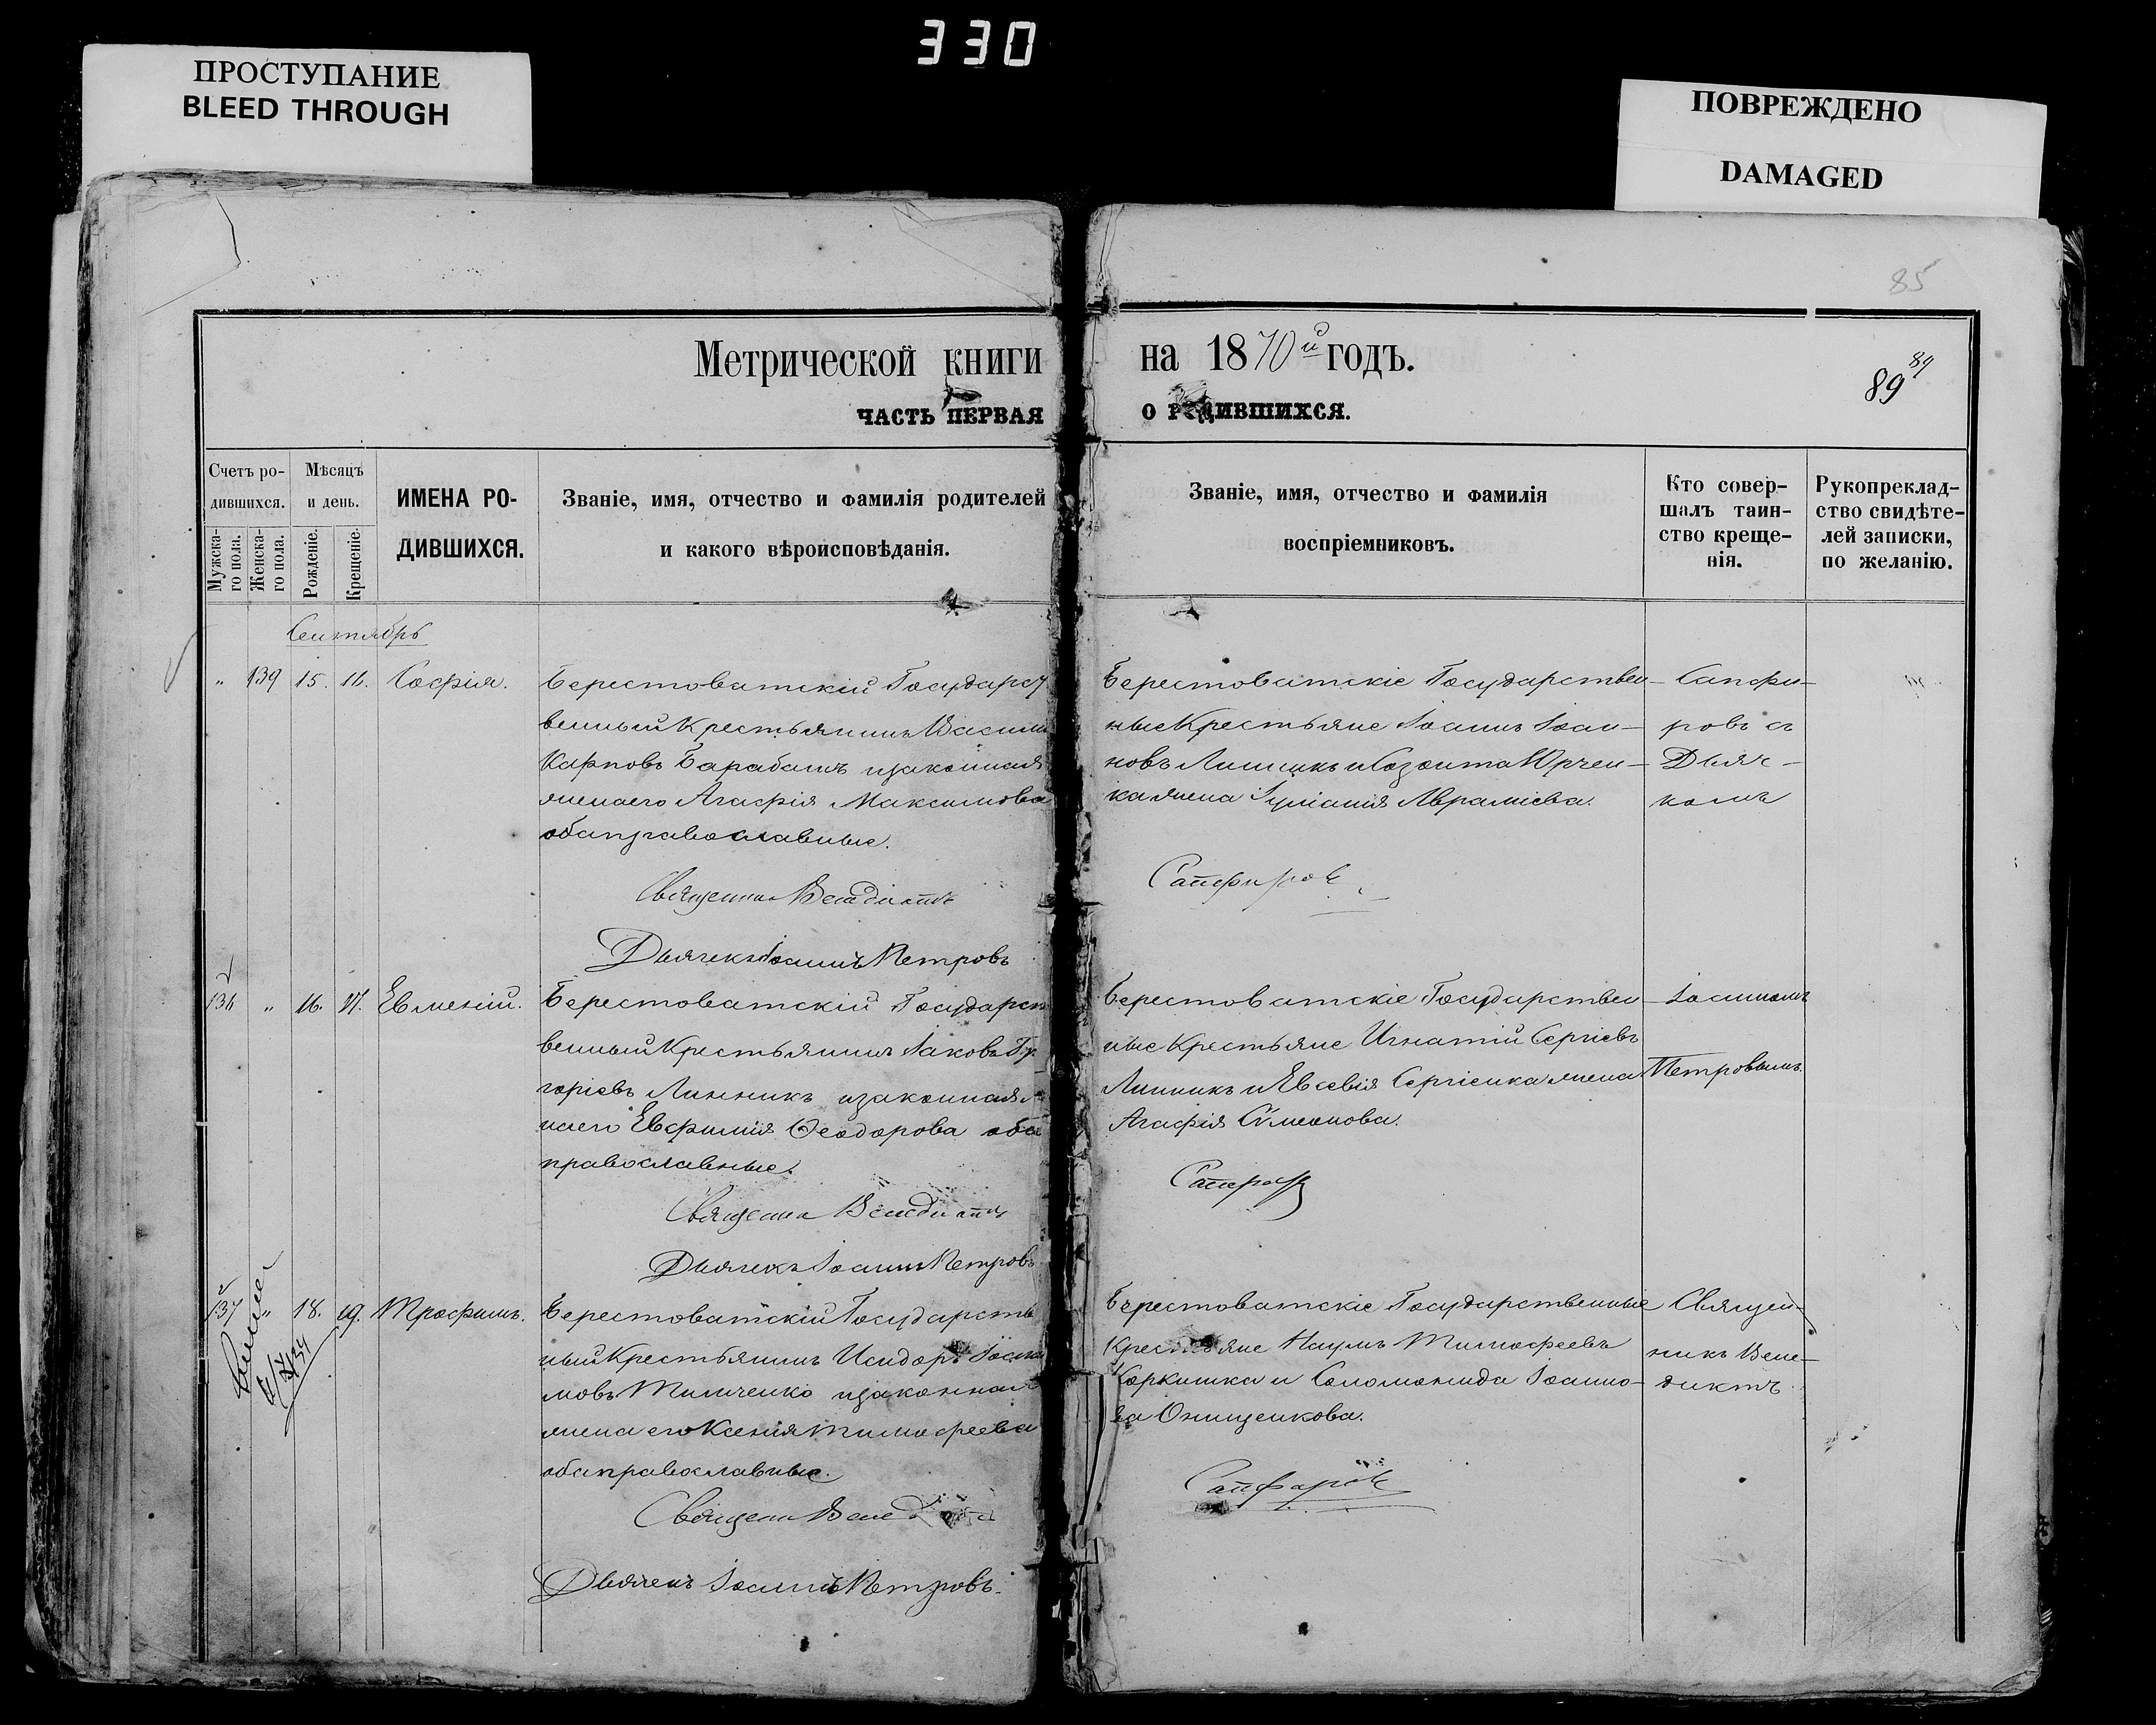 330
ПРОСТУПАНИЕ
BLEED THROUGH
ПОВРЕЖДЕНО
DAMAGED
85
Метрической книги на 1870й годъ.
89 89
ЧАСТЬ ПЕРВАЯ О РОДИВШИХСЯ.
Счетъ ро-
дившихся.
Мужска-
го пола.
Женска-
го пола.
Мѣсяцъ
и день.
Рожденіе.
Крещеніе.
ИМЕНА РО-
ДИВШИХСЯ.
Званіе, имя, отчество и фамилія родителей
и какого вѣроисповѣданія.
Званіе, имя, отчество и фамилія
воспріемниковъ.
Кто совер-
шалъ таин-
ство креще-
нія.
Рукоприклад-
ство свидѣте-
лей записки,
по желанію.
Сентябрь
„ 139 15. 16. Софія.
Берестоватскій Государст
венный Крестьянинъ Васили
Карповъ Барабашъ изаконная
женаего Агафія Максимова
обаправославные.
Священник Венедиктъ
Дьячекъ Іоаннъ Петровъ
Берестоватскіе Государствен-
ные Крестьяне Іоаннъ Іоан-
новъ Линникъ и Созонта Юрчен-
ка жена Іуліанія Авраміева.
Сапфиров
Сапфи-
ровъ съ
Дьяч-
комъ
136 „ 16. 17. Евменій.
Берестоватскій Государст
венный Крестьянинъ Іаковъ Гр
горіевъ Линникъ изаконная ж
наего Евфимія Ѳеодорова оба
православные.
Священник Венедиктъ
Дьячекъ Іоаннъ Петровъ
Берестоватскіе Государствен-
ные Крестьяне Игнатій Сергіевъ
Линникъ и Евсевія Сергіенка жена
Агафія Сѵмеонова.
Іоанномъ
Петровымъ
137 „ 18. 19. Трофимъ.
Берестоватскій Государстве
ный Крестьянинъ Исидоръ Іоаки
мовъ Тимченко изаконная
жена его Ксенія Тимофеева
обаправославные.
Священник Венед
Дьячекъ Іоаннъ Петровъ.
Берестоватскіе Государственные
Крестьяне Наумъ Тимофеевъ
Коркишка и Соломонида Іоанно-
ва Онищенкова.
Сапфиров
Священ-
никъ Вене-
диктъ